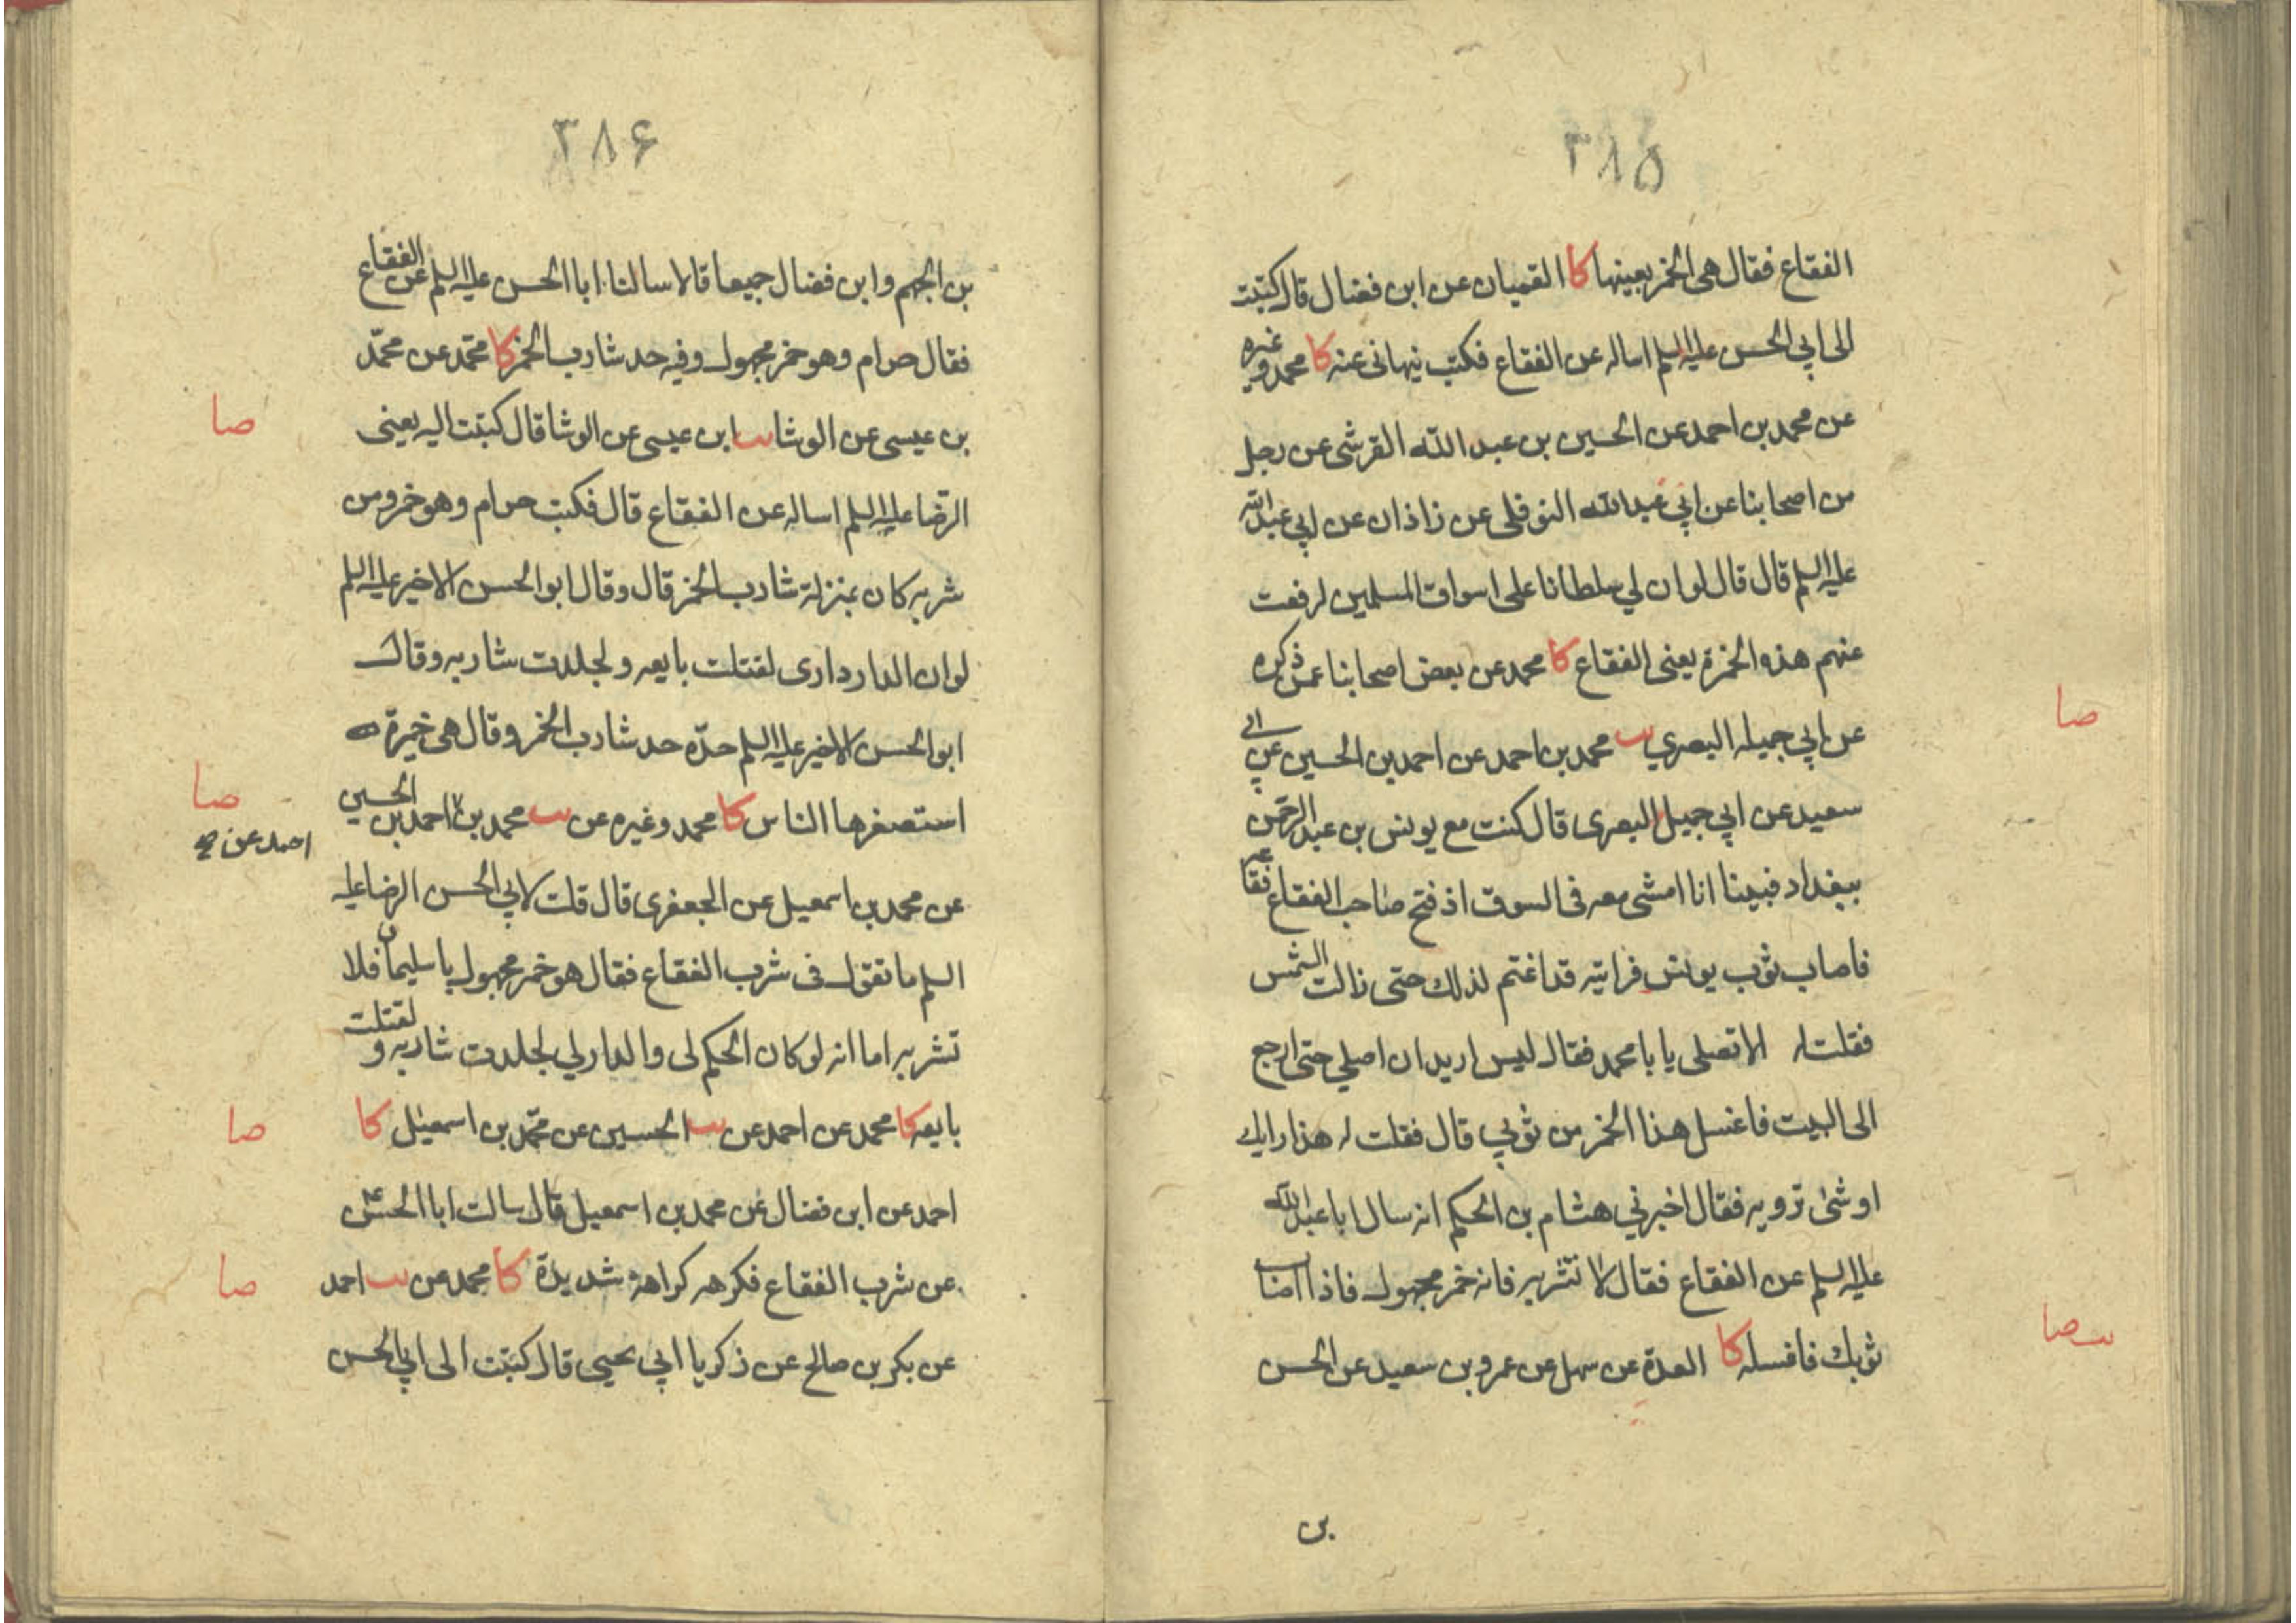 ٣٨٥
الفقاع فقال هى الخمر بعينها كا القميان عن ابن فضال قال كتبت
الى ابي الحسن عليه السلم اساله عن الفقاع فكتب نيهانى عنه كا محمد وغيره
عن محمد بن احمد عن الحسين بن عبد الله القرشى عن رجل
من اصحابنا عن ابي عبد الله النوفلى عن زاذان عن ابي عبد الله
عليه السلم قال قال لو ان لي سلطانا على اسواق المسلمين لرفعت
عنهم هذه الخمرة يعنى الفقاع كا محمد عن بعض اصحابنا عمن ذكره
عن ابي جميله البصري يب محمد بن احمد عن احمد بن الحسين عن ابي
صا
سعيد عن ابي جميل البصرى قال كنت مع يونس بن عبد الرحمن
ببغداد فبينا انا امشى معه فى السوق اذ فتح صاحب الفقاع فقاعه
فاصاب ثوب يونس فرايته قد اغتم لذلك حتى زالت الشمس
فقلت له الا تصلى يا با محمد فقال ليس اريد ان اصلي حتى ارجع
الى البيت فاغسل هذا الخمر من ثوبي قال فقلت له هذا رايك
او شئ ترويه فقال اخبرني هشام بن الحكم انه سال ابا عبد الله
عليه السلم عن الفقاع فقال لا تشربه فانه خمر مجهول فاذا اصاب
ثوبك فاغسله كا العدة عن سهل عن عمرو بن سعيد عن الحسن
يب صا
بن
٣٨۶
بن الجهم وابن فضال جميعا قالا سالنا ابا الحسن عليه السلم عن الفقاع
فقال حرام وهو خمر مجهول وفيه حد شارب الخمر كا محمد عن محمد
بن عيسى عن الوشا يب ابن عيسى عن الوشا قال كتبت اليه يعنى
صا
الرضا عليه السلم اساله عن الفقاع قال فكتب حرام وهو خمر ومن
شربه كان بمنزلة شارب الخمر قال وقال ابو الحسن الاخير عليه السلم
لو ان الدار دارى لقتلت بايعه ولجلدت شاربه وقال
ابو الحسن الاخير عليه السلم حده حد شارب الخمر وقال هى خميرة
استصغرها الناس كا محمد وغيره عن يب محمد بن احمد بن الحسين
صا
احمد عن
عن محمد بن اسمعيل عن الجعفرى قال قلت لابي الحسن الرضا عليه
السلم ما تقول فى شرب الفقاع فقال هو خمر مجهول يا سليمان فلا
تشربه اما انه لو كان الحكم لى والدار لي لجلدت شاربه ولقتلت
بايعه كا محمد عن احمد عن يب الحسين عن محمد بن اسمعيل كا
صا
احمد عن ابن فضال عن محمد بن اسمعيل قال سالت ابا الحسن ع
عن شرب الفقاع فكرهه كراهة شديدة كا محمد عن يب احمد
صا
عن بكر بن صالح عن زكريا ابي يحيى قال كتبت الى ابي الحسن